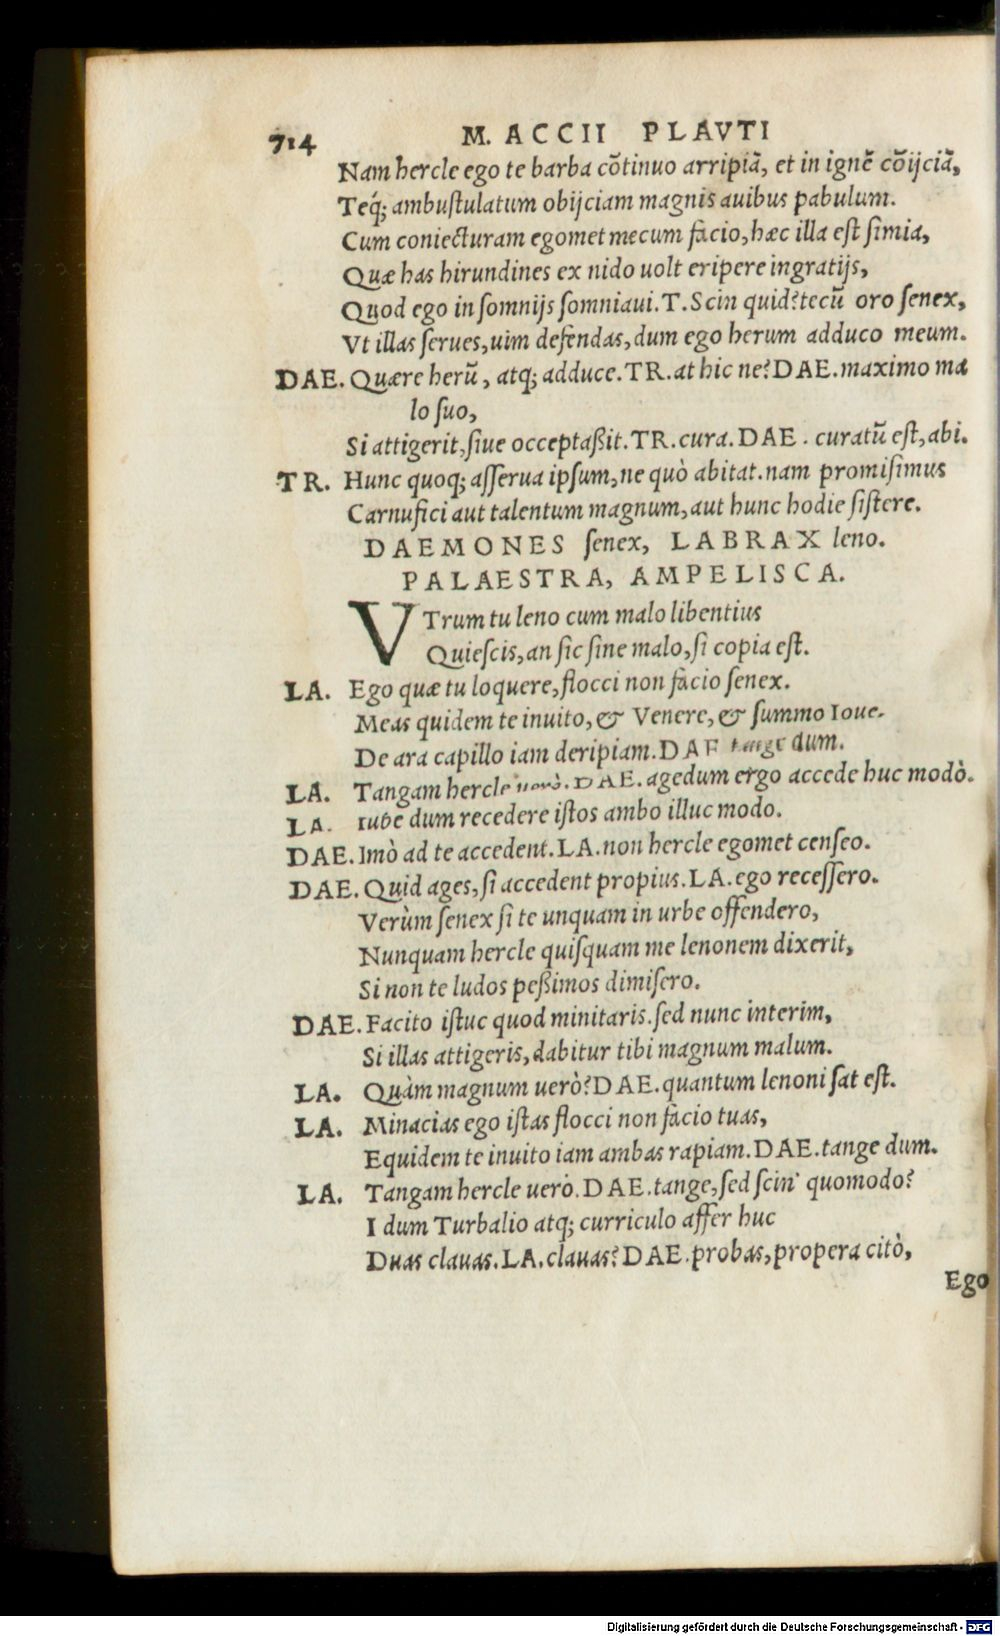 714 M. ACCII PLAVTI
Nam hercle ego te barba cõtinuo arripiã, et in ignẽ cõijciã,
Teq́; ambuſtulatum obijciam magnis auibus pabulum.
Cum coniecturam egomet mecum facio, hæc illa eſt ſimia,
Quæ has hirundines ex nido uolt eripere ingratijs,
Quod ego in ſomnijs ſomniaui. T. Scin quid? tecũ oro ſenex,
Vt illas ſerues, uim defendas, dum ego herum adduco meum.
DAE. Quære herũ, atq; adduce. TR. at hic ne? DAE. maximo ma
lo ſuo,
Si attigerit, ſiue occeptaßit. TR. cura. DAE. curatũ eſt, abi.
TR. Hunc quoq; aſſerua ipſum, ne quò abitat. nam promiſimus
Carnufici aut talentum magnum, aut hunc hodie ſiſtere.
DAEMONES ſenex, LABRAX leno.
PALAESTRA, AMPELISCA.
VTrum tu leno cum malo libentius
Quieſcis, an ſic ſine malo, ſi copia eſt.
LA. Ego quæ tu loquere, flocci non facio ſenex.
Meas quidem te inuito, & Venere, & ſummo Ioue.
De ara capillo iam deripiam. DAE tange dum.
LA. Tangam hercle uerò. DAE. agedum ergo accede huc modò.
LA. Iube dum recedere iſtos ambo illuc modo.
DAE. Imò ad te accedent. LA. non hercle egomet cenſeo.
DAE. Quid ages, ſi accedent propius. LA. ego receſſero.
Verùm ſenex ſi te unquam in urbe offendero,
Nunquam hercle quiſquam me lenonem dixerit,
Si non te ludos peßimos dimiſero.
DAE. Facito iſtuc quod minitaris. ſed nunc interim,
Si illas attigeris, dabitur tibi magnum malum.
LA. Quàm magnum uerò? DAE. quantum lenoni ſat eſt.
LA. Minacias ego iſtas flocci non facio tuas,
Equidem te inuito iam ambas rapiam. DAE. tange dum.
LA. Tangam hercle uerò. DAE. tange, ſed ſcin' quomodo?
I dum Turbalio atq; curriculo affer huc
Duas clauas. LA. clauas? DAE. probas, propera citò,
Ego
Digitalisierung gefördert durch die Deutsche Forschungsgemeinschaft - DFG